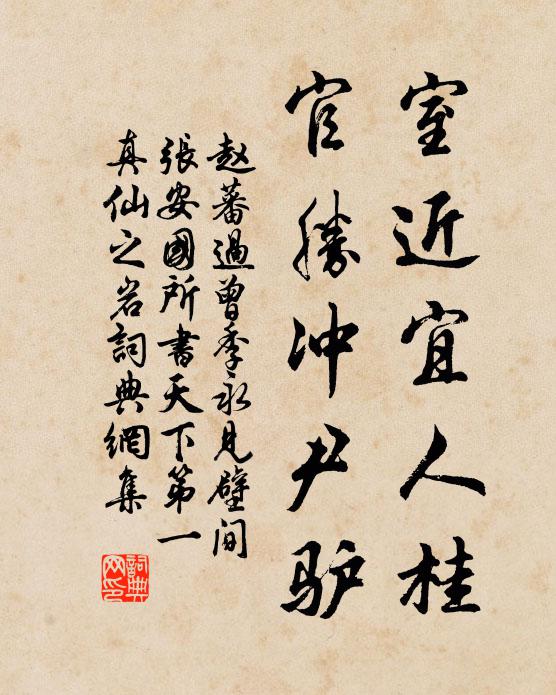 室近宜人桂
官勝冲尹驴
赵蕃過曾季永見壁间
張安國所書天下第一
真仙之岩詞典網集
詞典网印